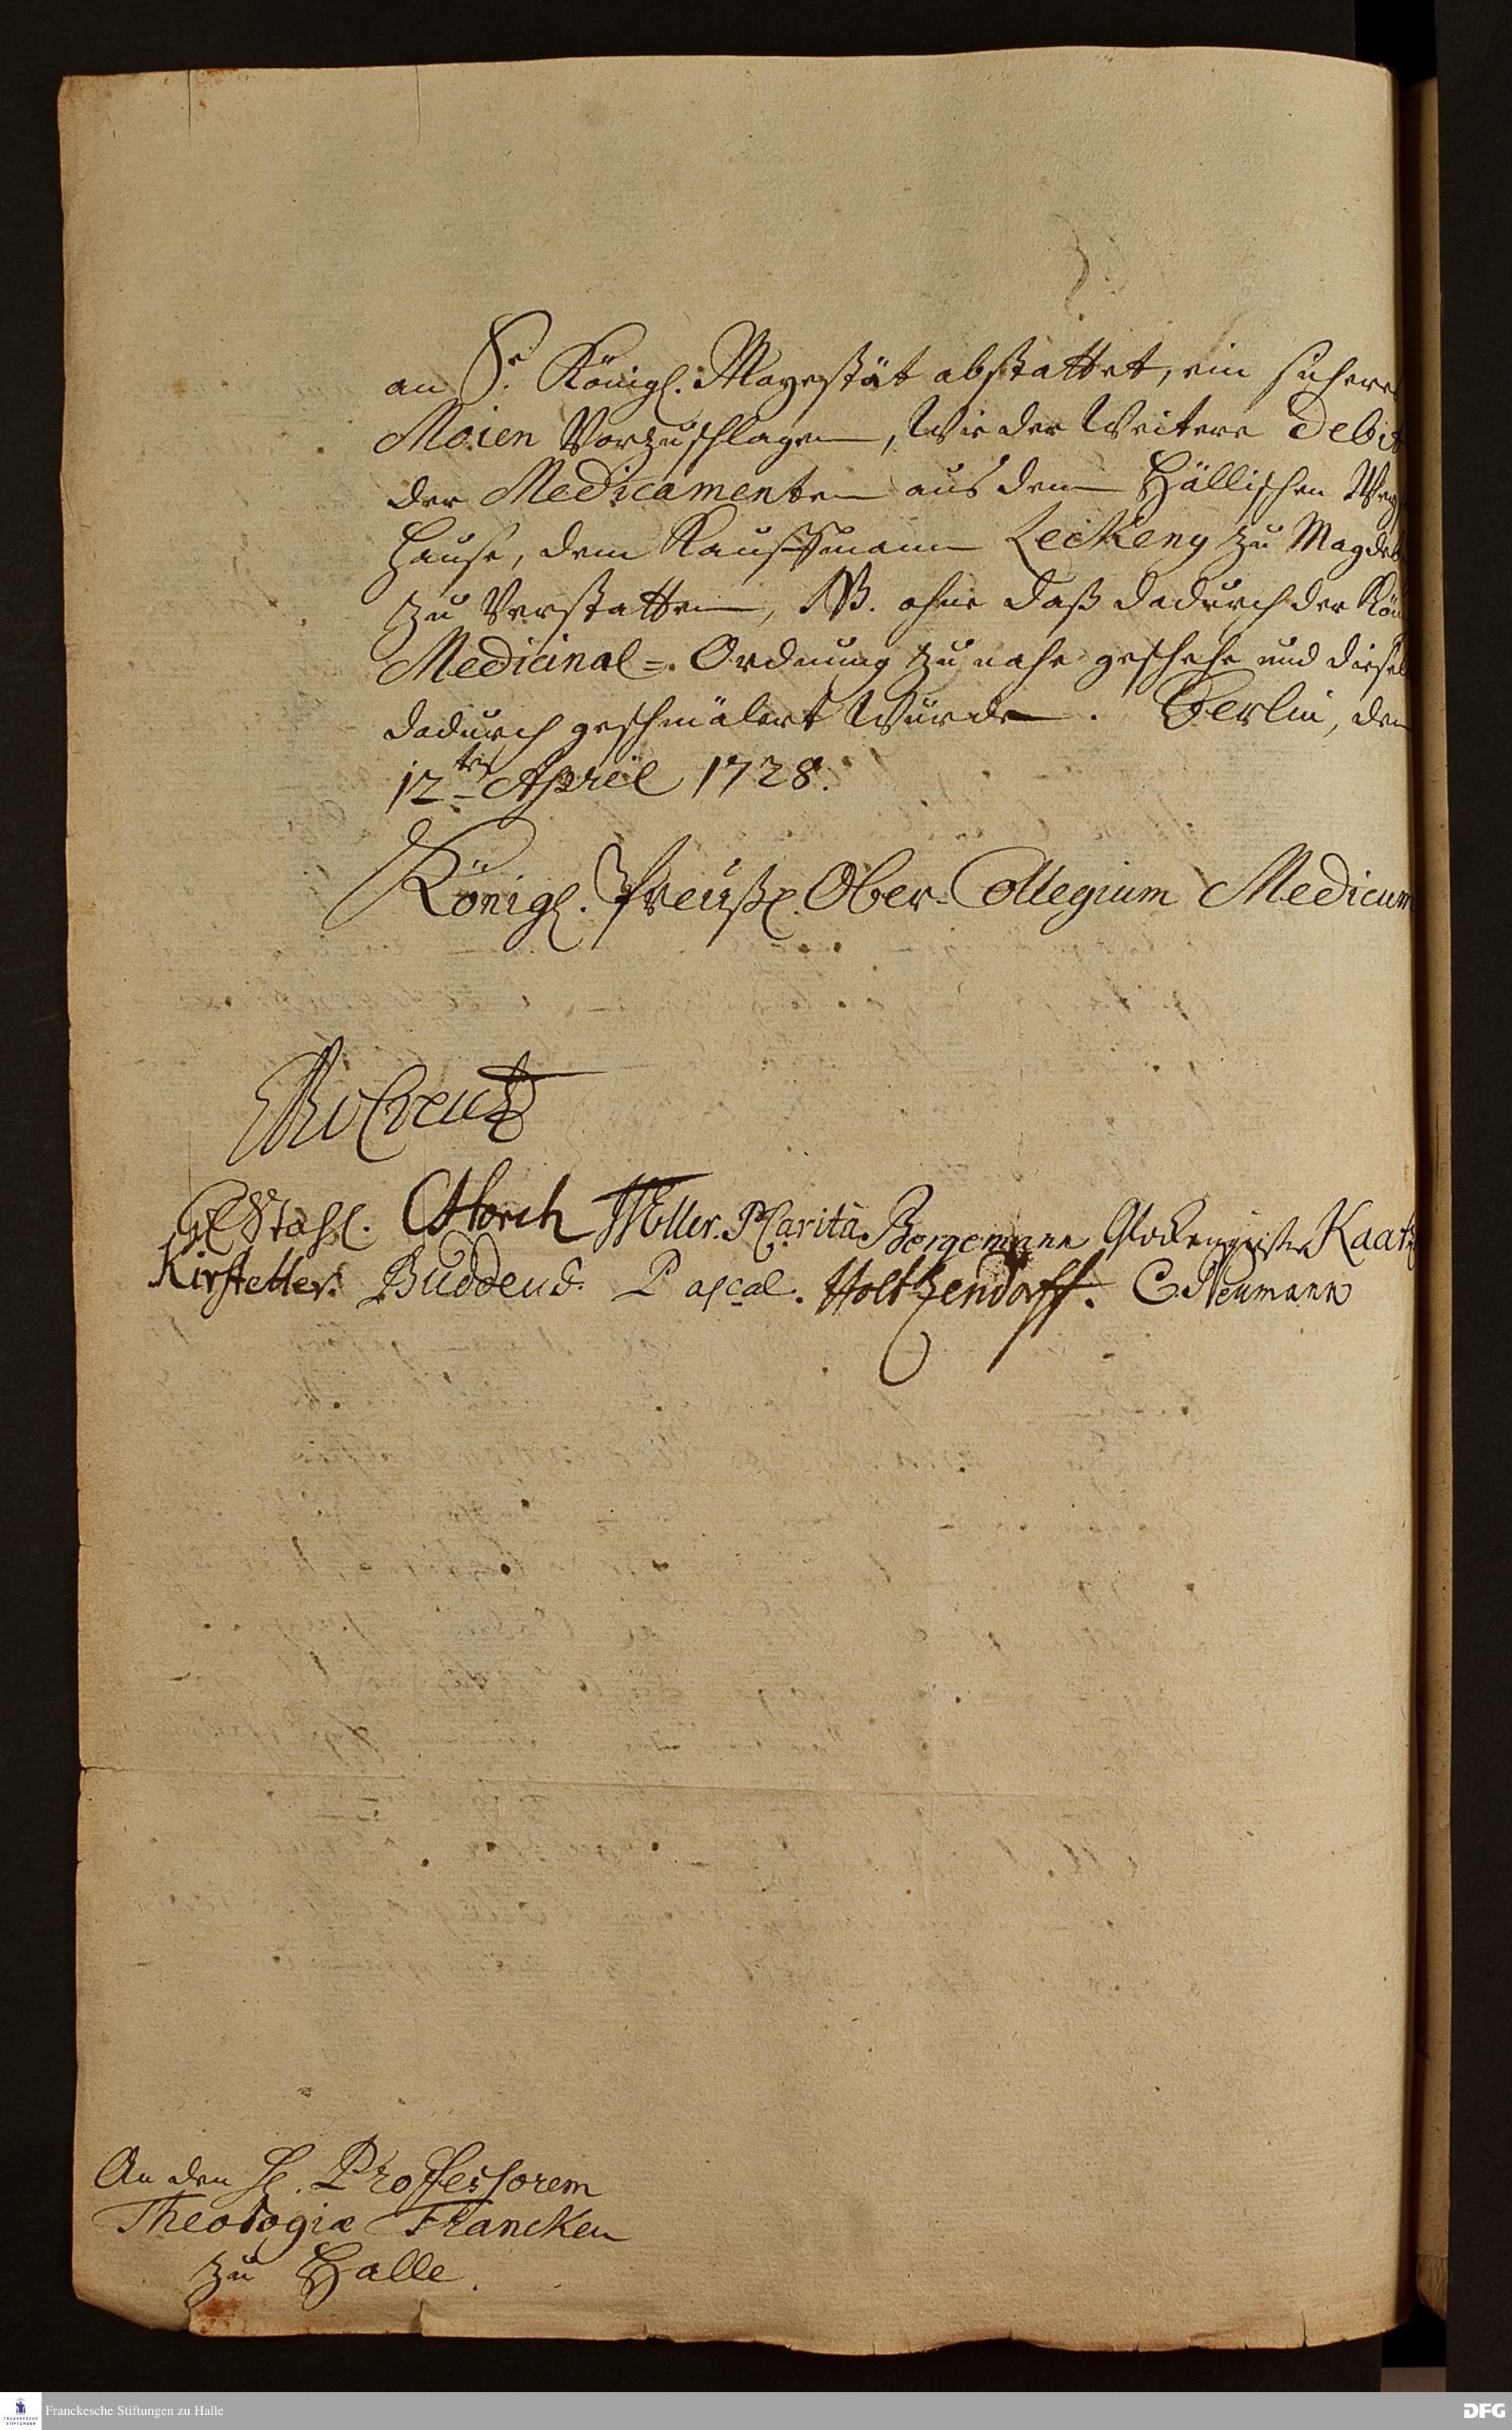 an Se. Königl. Mayestät abstattet, ein sicheres
Moien Vorzuschlagen, Wie der Weitere Debit
der Medicamenten aus dem Hällischen
Hause, dem Kauffmann Leckeny zu Magdeb
zu Verstatten, NB. ohne daß dadurch der Kön
Medicinal-Ordnung zu nahe geschehe und diesel
dadurch geschmälert Würde. Berlin, den
12ten Aprill 1728.
Königl. Preußl. Ober-Collegium Medicum
Creutz
GEStahl. CHorch Möller. PCarita. Bergemann Glockengießer Kaatz
Kirstetter. Buddeus. Pascal. Holtzendorff. C. Neumann
An den H. Professorem
Theologiæ Francken
zu Halle.
Franckesche Stiftungen zu Halle
DFG